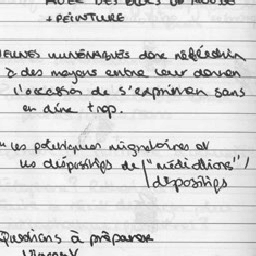 AVEC DES BLOCS DE
+ PEINTURE
JEUNES VULNÉRABLES donc réfléchir
à des moyens entre leur donner
l'occasion de s'exprimer sans
en dire trop.
les politiques migratoires et
les dispositifs de "médiations" /
/ dispositifs
Questions à préparer